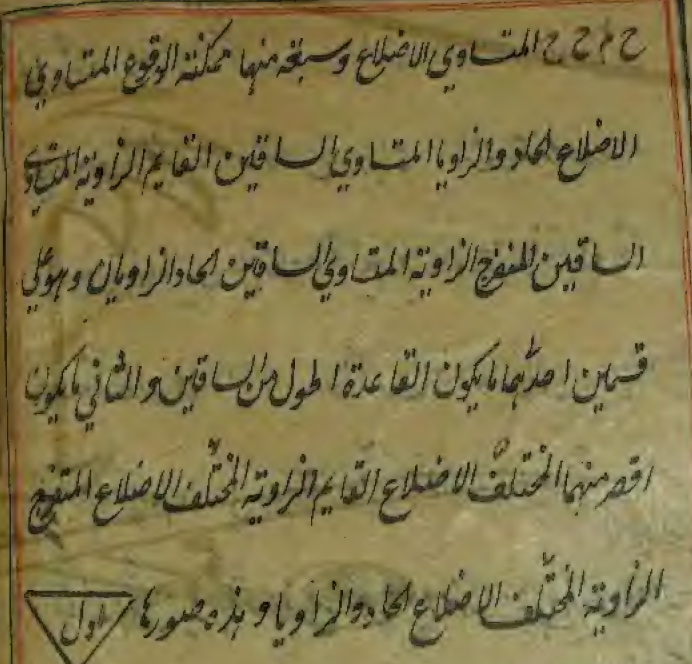 ح م ح ح المتساوي الاضلاع وسبعة منها ممكنة الوقوع المتساوي
الاضلاع الحاد والزاويا المتساوي الساقين القايم الزاوية المتساوي
الساقين المنفرج الزاوية المتساوي الساقين الحاد الزاويان وهو على
قسمين احدهما ما يكون القاعدة اطول من الساقين والثاني ما يكون
اقصر منهما المختلف الاضلاع القايم الزاوية المختلف الاضلاع المنفرج
الزاوية المختلف الاضلاع الحاد والزاويا وهذه صورها اول